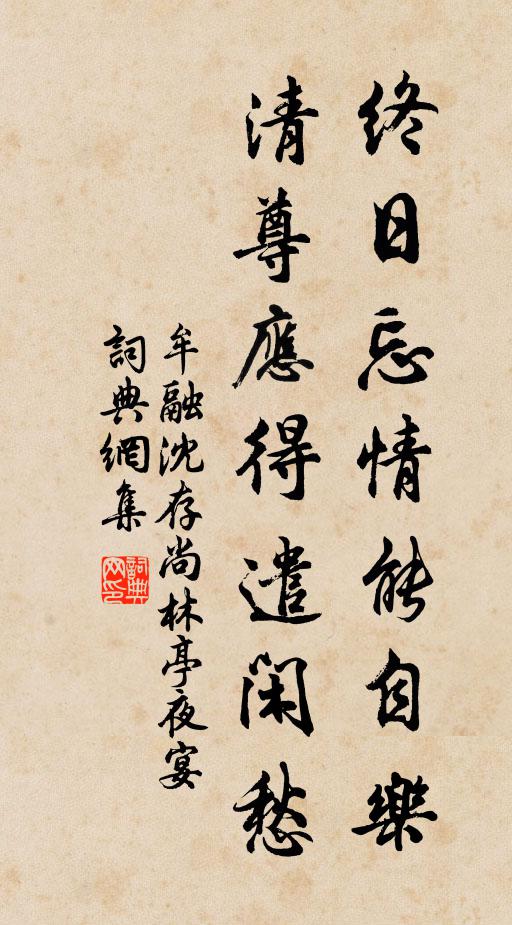 終日忘情能自樂
清尊應得遣閑愁
牟融沈存尚林亭夜宴
詞典網集
詞典网印